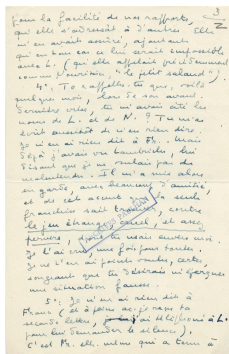 3
pour la facilité de nos rapports,
qu'elle s'adressât à d'autres. Elle
m'en avait assuré, ajoutant
que cela lui était impossible
avec L. (qu'elle appelait précédemment
"le petit salaud").
4°: Te rappelles-tu que, voilà
quelques mois, lors de son avant-
dernière crise, tu m'avais cité les
noms de L. et de N. ? Tu m'as
écrit aussitôt de n'en rien dire.
Je n'en ai rien dit à Fr. Mais
déjà j'avais vu
disant que je ne voulais pas de
malentendu. Il m'a mis alors
en garde, avec beaucoup d'amitié,
et de cet accent que sa
franchise sait trouver, contre
le jeu étrange, cruel, et assez
pervers, dont tu mais envers moi.
Je l'ai cru, une fois pour toutes.
Je ne t'en ai pas voulu, certes,
songeant que tu désirais m'épargner
une situation fausse.
5°: Je n'ai rien dit à
Franc. (et à peine ai-je reçu ta
seconde lettre, j'ai téléphoné à L.
pour lui demander le silence).
C'est Fr. elle-même qui a tenu à